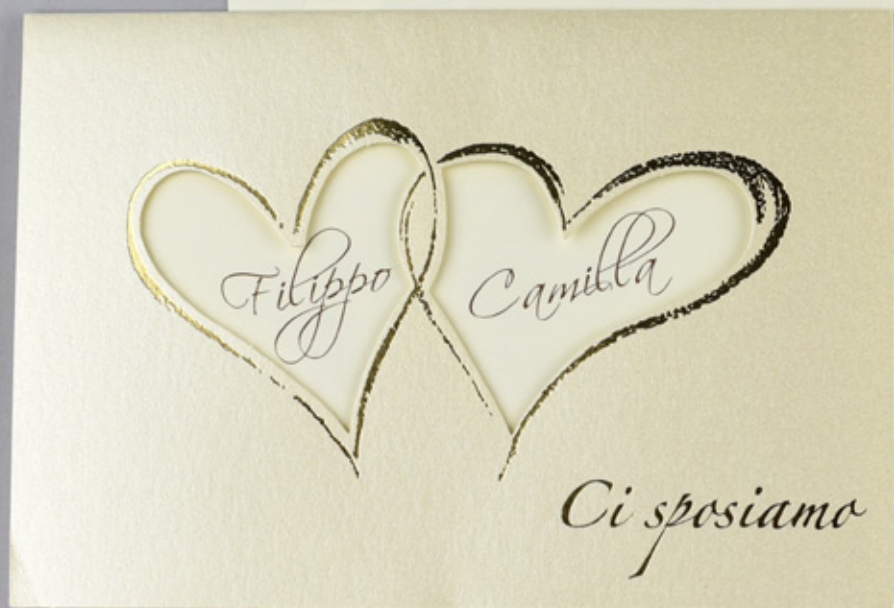 Filippo
Camilla
Ci sposiamo